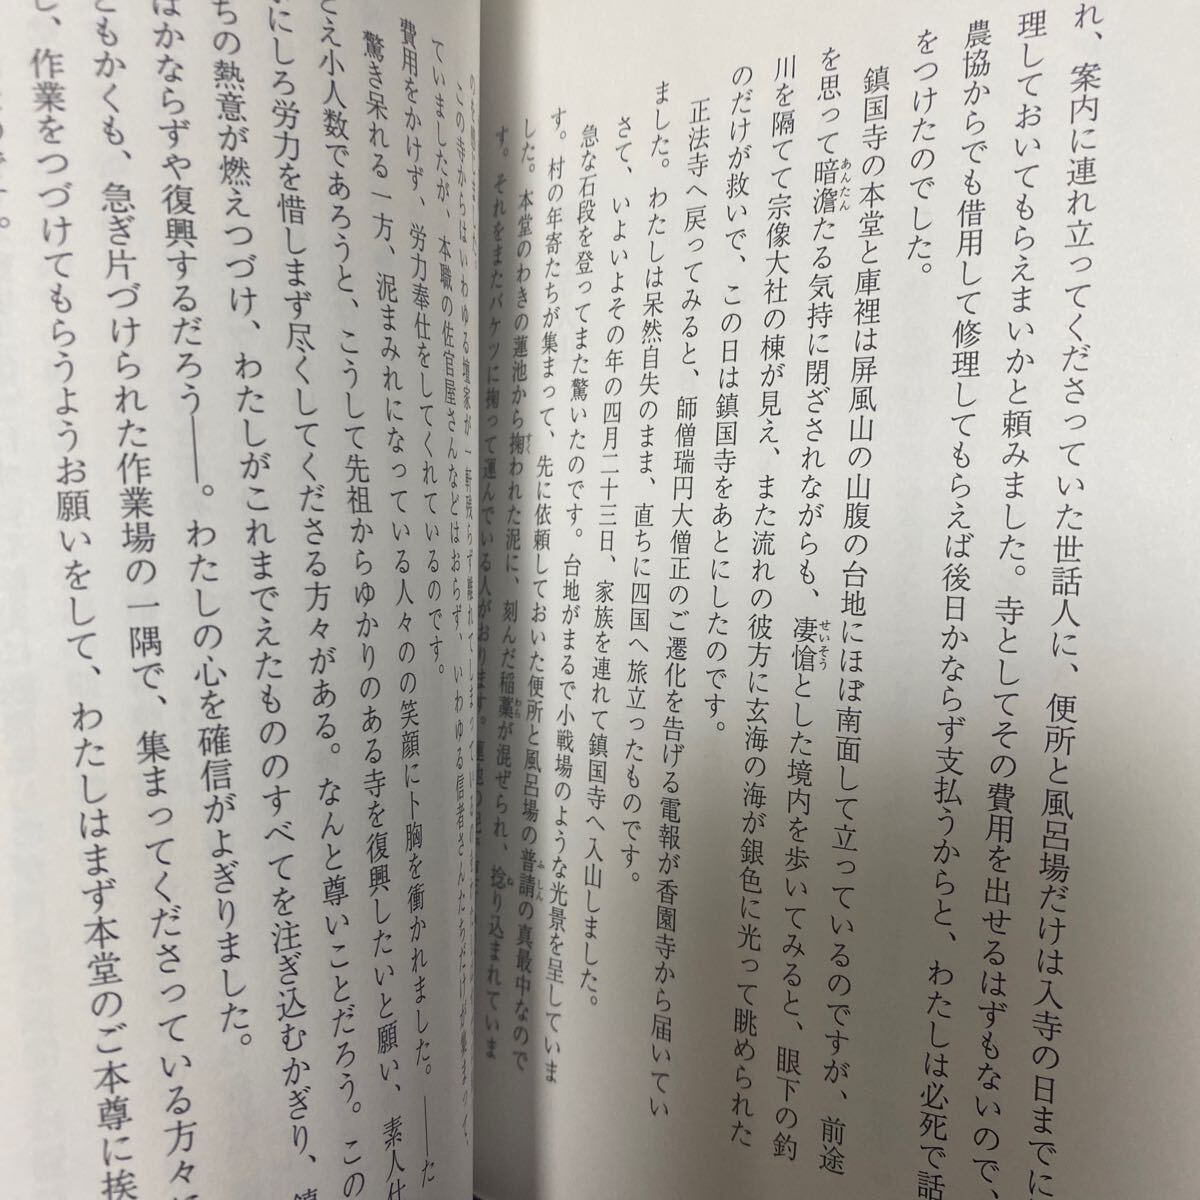 れ、案内に連れ立ってくださっていた世話人に、便所と風呂場だけは入寺の日までに
理しておいてもらえまいかと頼みました。寺としてその費用を出せるはずもないので、
農協からでも借用して修理してもらえば後日かならず支払うからと、わたしは必死で話
をつけたのでした。
鎮国寺の本堂と庫裡は屏風山の山腹の台地にほぼ南面して立っているのですが、前途
を思って暗澹たる気持に閉ざされながらも、凄愴とした境内を歩いてみると、眼下の釣
川を隔てて宗像大社の棟が見え、また流れの彼方に玄海の海が銀色に光って眺められた
のだけが救いで、この日は鎮国寺をあとにしたのです。
正法寺へ戻ってみると、師僧瑞円大僧正のご遷化を告げる電報が香園寺から届いてい
ました。わたしは呆然自失のまま、直ちに四国へ旅立ったものです。
さて、いよいよその年の四月二十三日、家族を連れて鎮国寺へ入山しました。
急な石段を登ってまた驚いたのです。台地がまるで小戦場のような光景を呈していま
す。村の年寄たちが集まって、先に依頼しておいた便所と風呂場の普請の真最中なので
した。本堂のわきの蓮池から掬われた泥に、刻んだ稲藁が混ぜられ、捻り込まれていま
す。それをまたバケツに掬って運んでいる人がおります。
この寺からはいわゆる壇家が一軒残らず離れてしまっている
ていましたが、本職の佐官屋さんなどはおらず、いわゆる信者さんたちだけが集まって、
費用をかけず、労力奉仕をしてくれているのです。
驚き呆れる一方、泥まみれになっている人々の笑顔にト胸を衝かれました。――た
とえ小人数であろうと、こうして先祖からゆかりのある寺を復興したいと願い、素人仕
にしろ労力を惜しまず尽くしてくださる方々がある。なんと尊いことだろう。この
ちの熱意が燃えつづけ、わたしがこれまでえたもののすべてを注ぎ込むかぎり、鎮
はかならずや復興するだろう――。わたしの心を確信がよぎりました。
ともかくも、急ぎ片づけられた作業場の一隅で、集まってくださっている方々に
し、作業をつづけてもらうようお願いをして、わたしはまず本堂のご本尊に挨